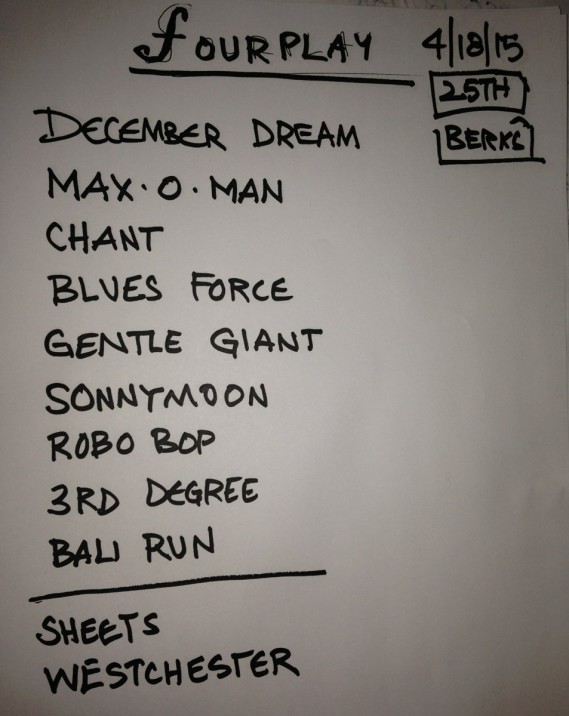 FOURPLAY 4/18/15
25TH
BERKS
DECEMBER DREAM
MAX·O·MAN
CHANT
BLUES FORCE
GENTLE GIANT
SONNYMOON
ROBO BOP
3RD DEGREE
BALI RUN
SHEETS
WESTCHESTER